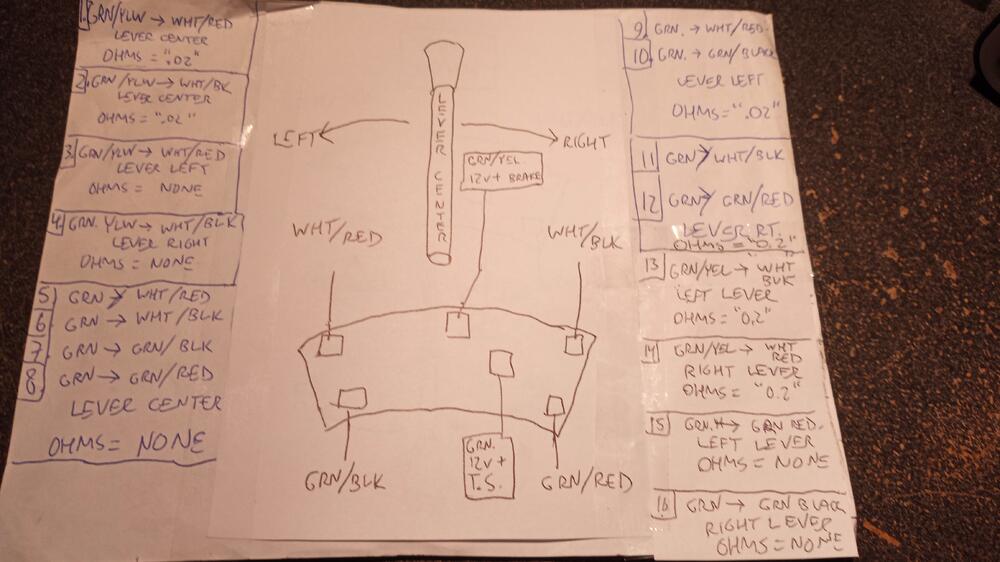 1. GRN/YLW → WHT/RED
LEVER CENTER
OHMS = ".02"
2. GRN/YLW → WHT/BK
LEVER CENTER
OHMS = ".02"
3. GRN/YLW → WHT/RED
LEVER LEFT
OHMS = NONE
4. GRN. YLW → WHT/BLK
LEVER RIGHT
OHMS = NONE
5 GRN → WHT/RED
6 GRN → WHT/BLK
7 GRN → GRN/BLK
8 GRN → GRN/RED
LEVER CENTER
OHMS = NONE
LEVER CENTER
LEFT
RIGHT
GRN/YEL.
12V+ BRAKE
WHT/RED
WHT/BLK
GRN/BLK
GRN.
12V+
T.S.
GRN/RED
9 GRN. → WHT/RED.
10. GRN. → GRN/BLACK
LEVER LEFT
OHMS = ".02"
11 GRN → WHT/BLK
12 GRN → GRN/RED
LEVER RT.
OHMS = "0.2"
13 GRN/YEL → WHT
BLK
LEFT LEVER
OHMS = "0.2"
14 GRN/YEL → WHT
RED
RIGHT LEVER
OHMS = "0.2"
15 GRN. → GRN RED.
LEFT LEVER
OHMS = NONE
16 GRN → GRN BLACK
RIGHT LEVER
OHMS = NONE